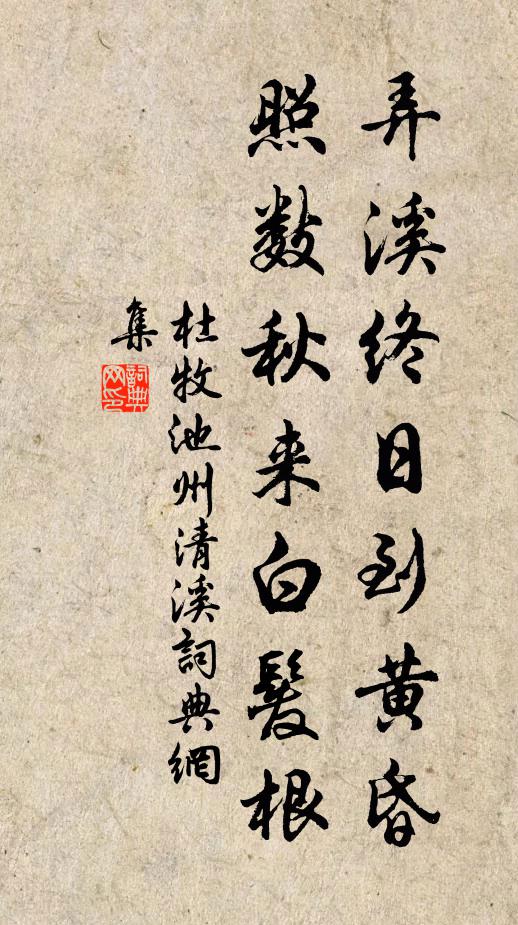 弄溪终日到黄昏
照数秋来白髮根
杜牧池州清溪詞典網
集
詞典
网印